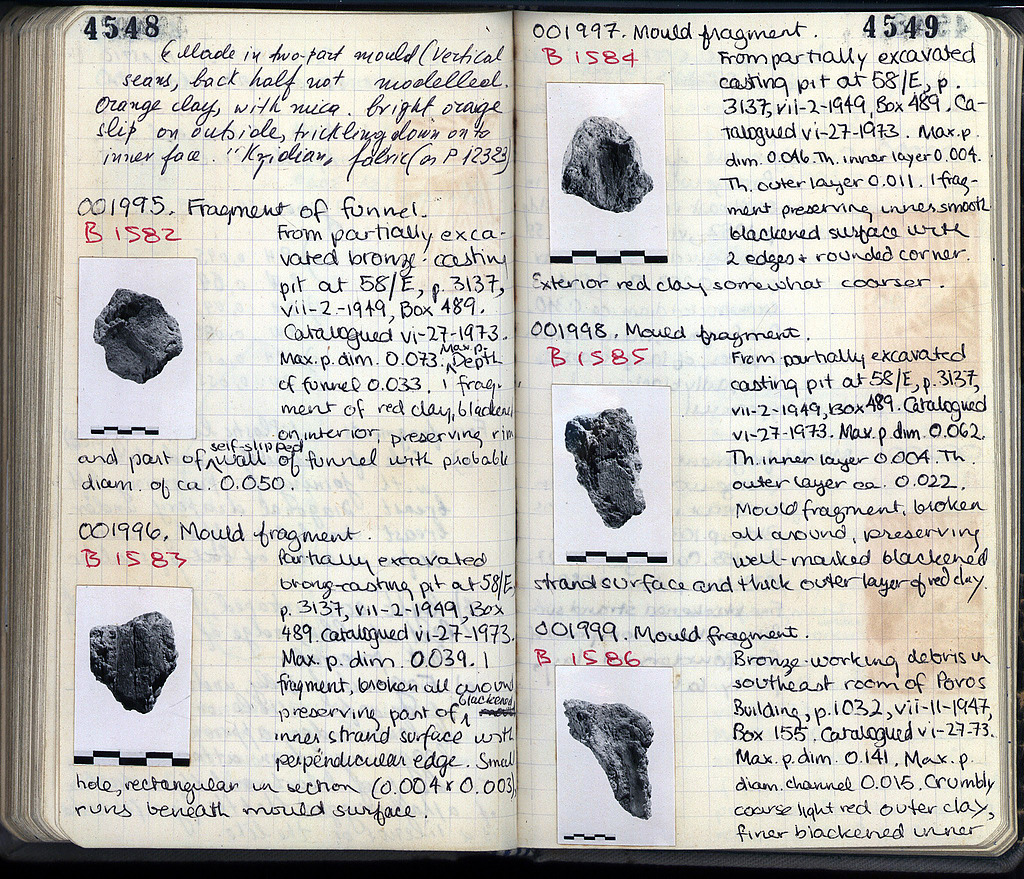 4548
Made in two-part mould (vertical
seams, back half not modelled.
Orange clay, with mica. bright orange
slip on outside, trickling down onto
inner face. "Knidian" fabric (on P 12323)
001995. Fragment of funnel.
B 1582
From partially exca-
vated bronze-casting
pit at 58/E, p. 3137,
vii-2-1949, Box 489.
Catalogued vi-27-1973.
Max. p. dim. 0.073. Max. p. Depth
of funnel 0.033. 1 frag-
ment of red clay, blackened
on interior, preserving rim
and part of self-slipped wall of funnel with probable
diam. of ca. 0.050.
001996. Mould fragment.
B 1583
Partially excavated
bronze-casting pit at 58/E,
p. 3137, vii-2-1949, Box
489. Catalogued vi-27-1973.
Max. p. dim. 0.039. 1
fragment, broken all around
preserving part of blackened
inner strand surface with
perpendicular edge. Small
hole, rectangular in section (0.004 x 0.003),
runs beneath mould surface.
4549
001997. Mould fragment.
B 1584
From partially excavated
casting pit at 58/E, p.
3137, vii-2-1949, Box 489. Ca-
talogued vi-27-1973. Max. p.
dim. 0.046. Th. inner layer 0.004.
Th. outer layer 0.011. 1 frag-
ment preserving inner smooth
blackened surface with
2 edges + rounded corner.
Exterior red clay somewhat coarser.
001998. Mould fragment.
B 1585
From partially excavated
casting pit at 58/E, p. 3137,
vii-2-1949, Box 489. Catalogued
vi-27-1973. Max. p. dim. 0.062.
Th. inner layer 0.004. Th.
outer layer ca. 0.022.
Mould fragment, broken
all around, preserving
well-marked blackened
strand surface and thick outer layer of red clay.
001999. Mould fragment.
B 1586
Bronze-working debris in
southeast room of Poros
Building, p. 1032, vii-11-1947,
Box 155. Catalogued vi-27-73.
Max. p. dim. 0.141, Max. p.
diam. channel 0.015. Crumbly
coarse light red outer clay,
finer blackened inner